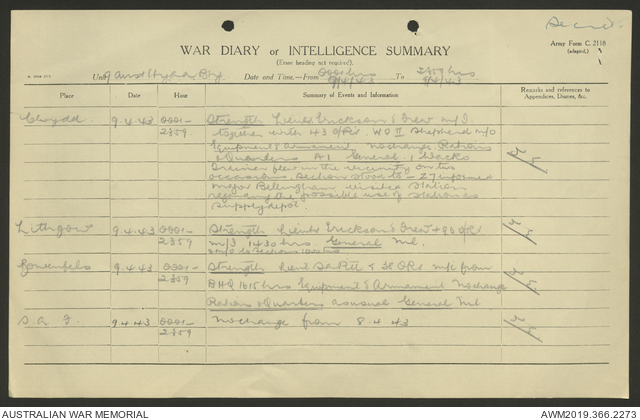 Secret
WAR DIARY or INTELLIGENCE SUMMARY
(Erase heading not required).
Army Form C. 2118
(adapted.)
Unit 9 Aust Bty
Date and Time—From 0001 hrs 9/4/43 To 2359 hrs 9/4/43
Place Date Hour Summary of Events and Information Remarks and references to Appendices, Diaries, &c.
9.4.43 0001- Strength Lieuts Erickson & Trew m/i
2359 together with 43 O/Rs. WO II Shepherd m/o
Equipment & Armament No change Rations
& Quarters A1 General
in the vicinity on two
occasions. Section stood to
Major Bellingham visited Station
regarding the possible use of Station as
supply depot.
Lithgow 9.4.43 0001- Strength Lieuts Erickson & Trew + 90 O/Rs
2359 m/i 1430 hrs General Nil.
Bowenfels 9.4.43 0001- Strength Lieut & 38 ORs m/i from
2359 BHQ 1615 hrs Equipment & Armament No change
Rations & Quarters as usual General Nil
9.4.43 0001- No change from 8.4.43
2359
AUSTRALIAN WAR MEMORIAL
AWM2019.366.2273